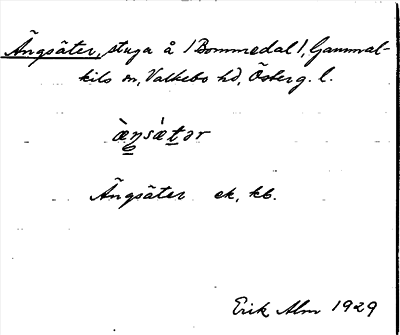 Ängsäter, stuga å /Bommedal/, Gammal-
kils sn, Valkebo hd, Österg. l.
æ̀ŋsæ̀tər
Ängsäter ek, kb.
Erik Alm 1929